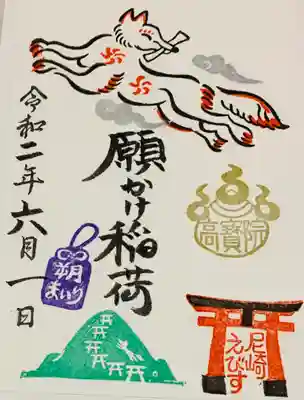 願かけ稲荷
令和二年六月一日
高寳院
朔
まいり
尼崎
えびす